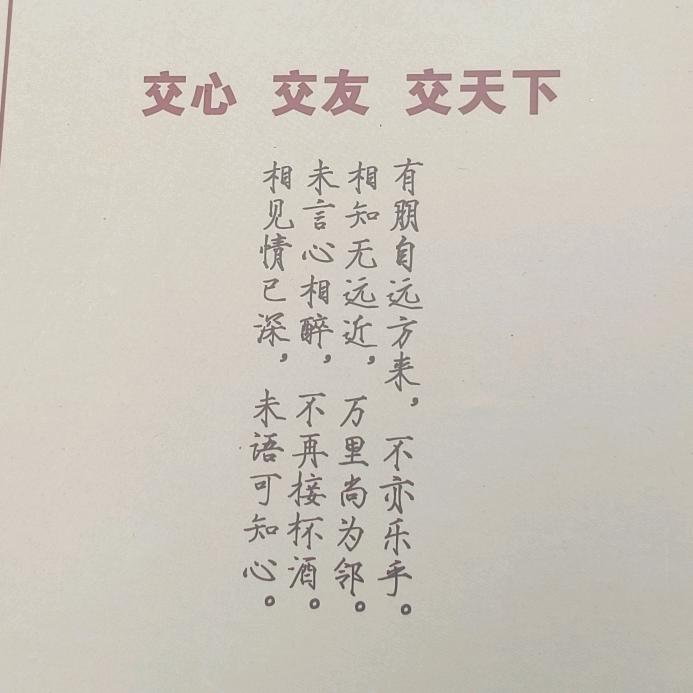 交心 交友 交天下
有朋自远方来，不亦乐乎。
相知无远近，万里尚为邻。
未言心相醉，不再接杯酒。
相见情已深，未语可知心。